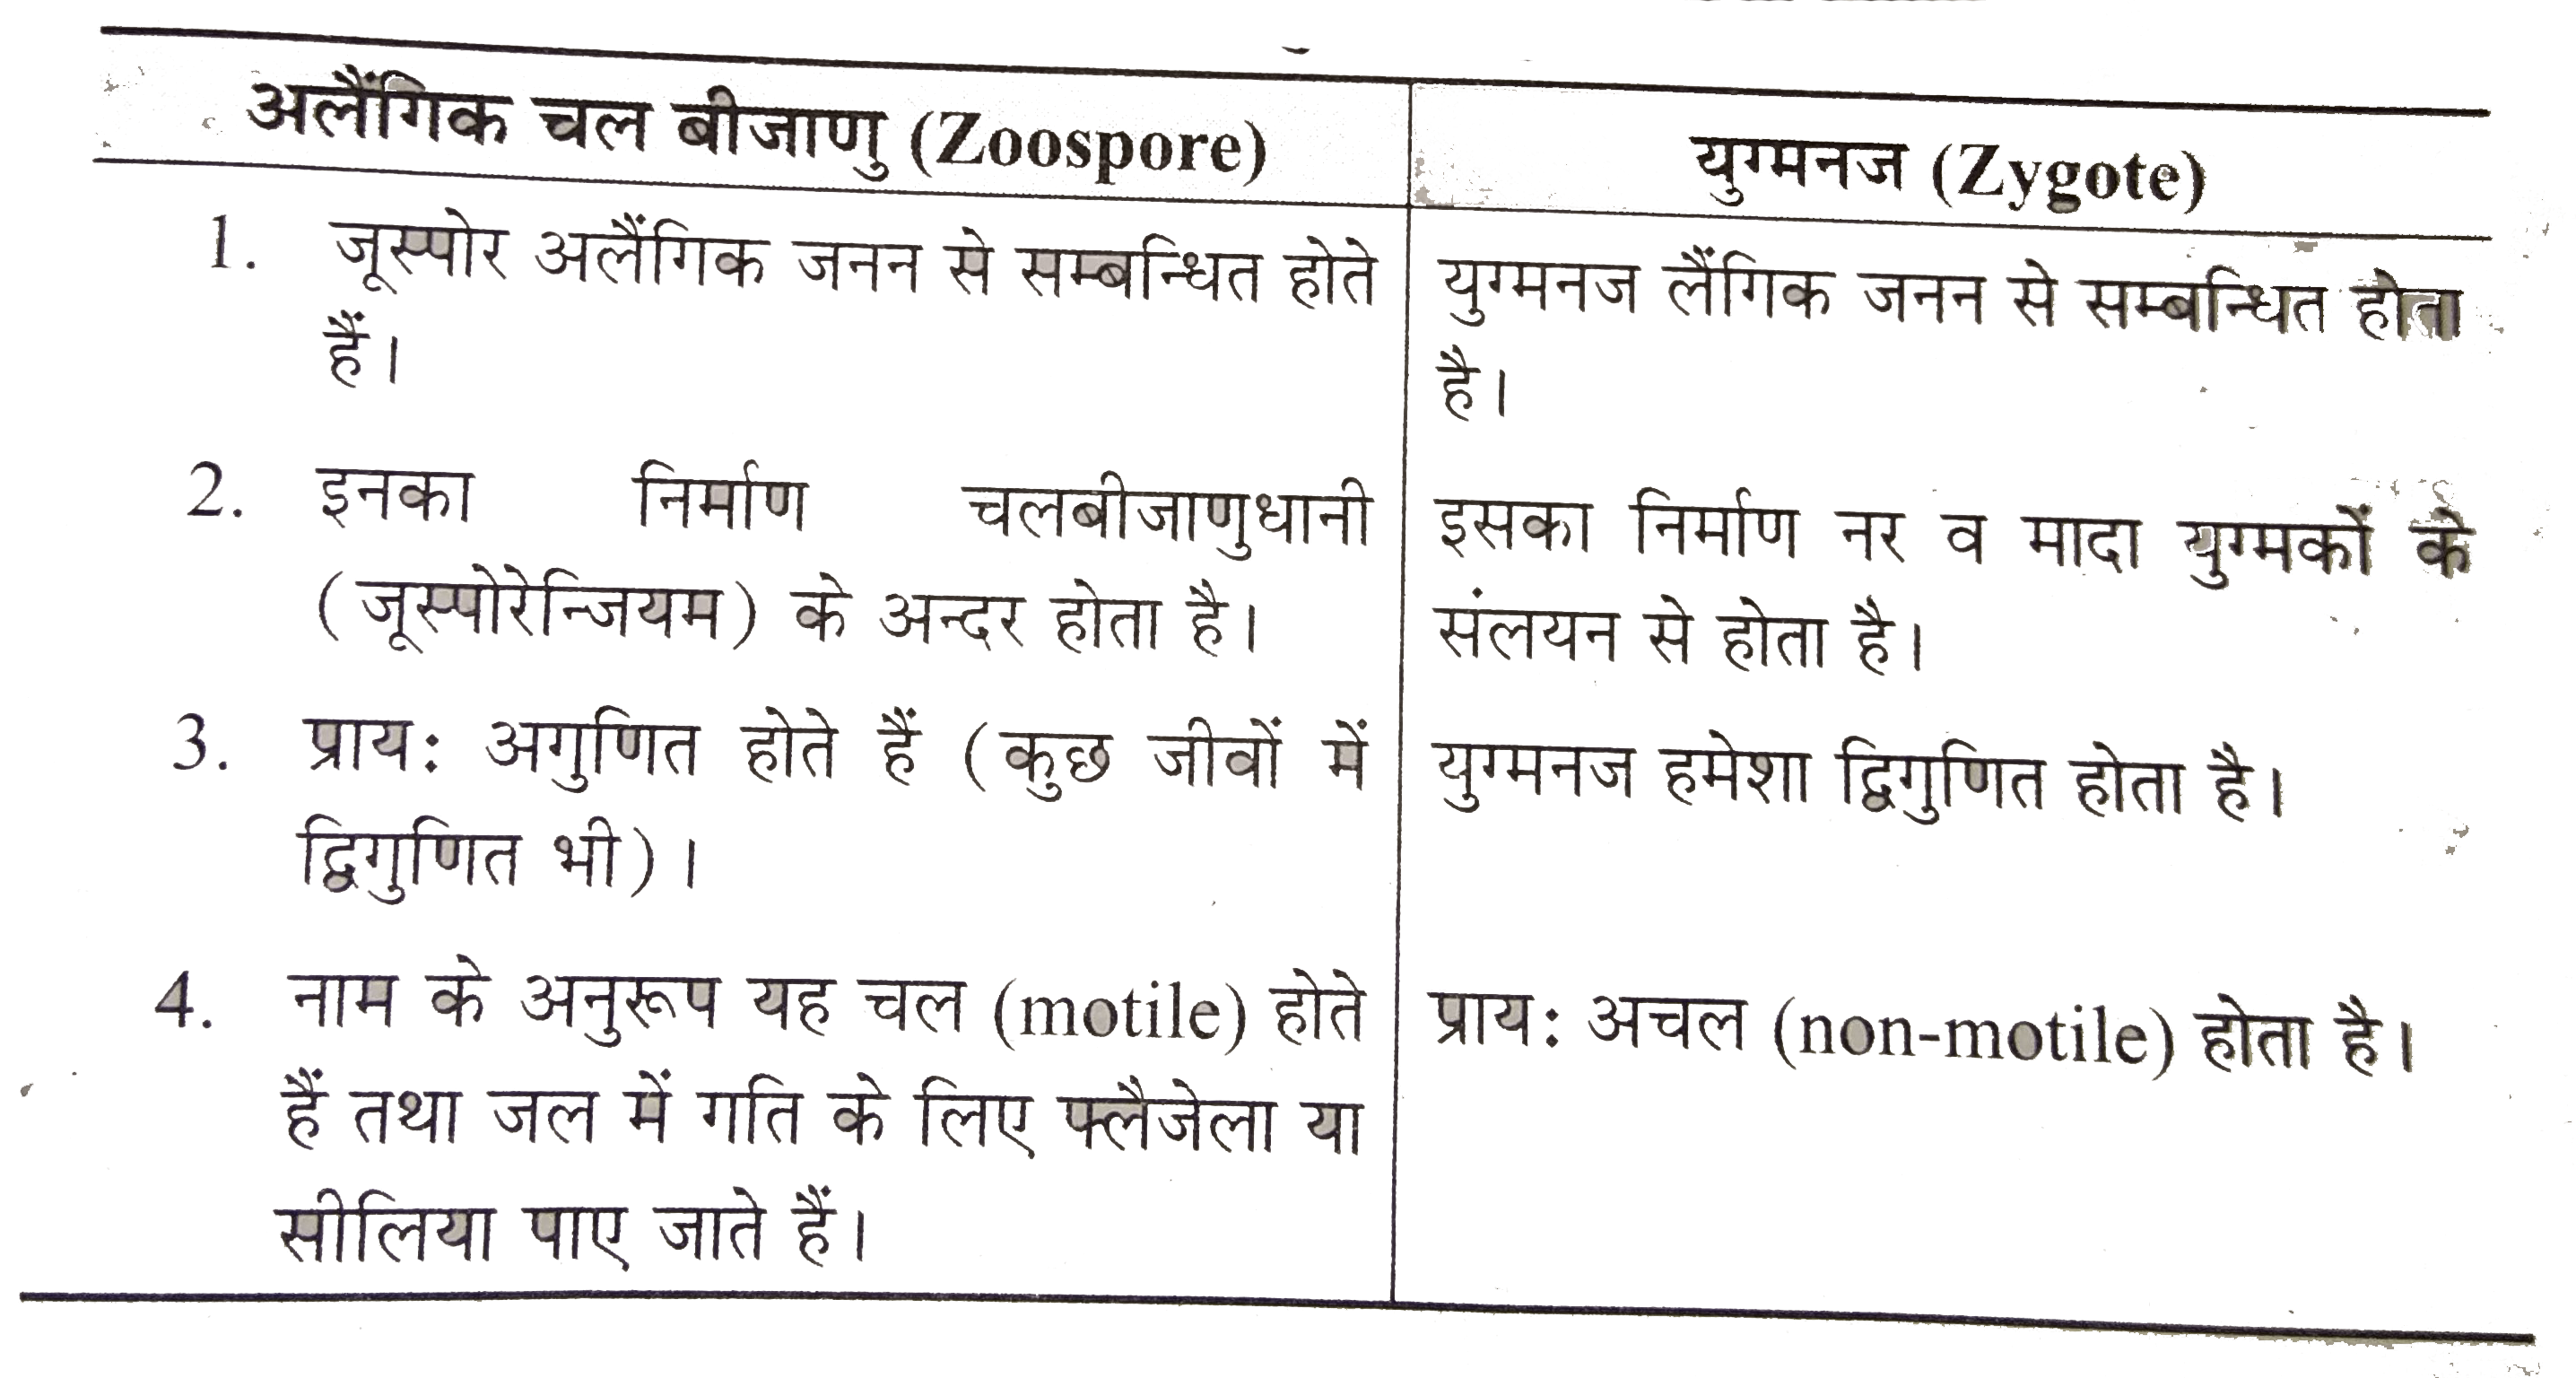 अलैंगिक चल बीजाणु (Zoospore)
युग्मनज (Zygote)
1. जूस्पोर अलैंगिक जनन से सम्बन्धित होते
हैं।
युग्मनज लैंगिक जनन से सम्बन्धित होता
है।
2. इनका निर्माण चलबीजाणुधानी
(जूस्पोरेन्जियम) के अन्दर होता है।
इसका निर्माण नर व मादा युग्मकों के
संलयन से होता है।
3. प्राय: अगुणित होते हैं (कुछ जीवों में
द्विगुणित भी)।
युग्मनज हमेशा द्विगुणित होता है।
4. नाम के अनुरूप यह चल (motile) होते
हैं तथा जल में गति के लिए फ्लैजेला या
सीलिया पाए जाते हैं।
प्राय: अचल (non-motile) होता है।